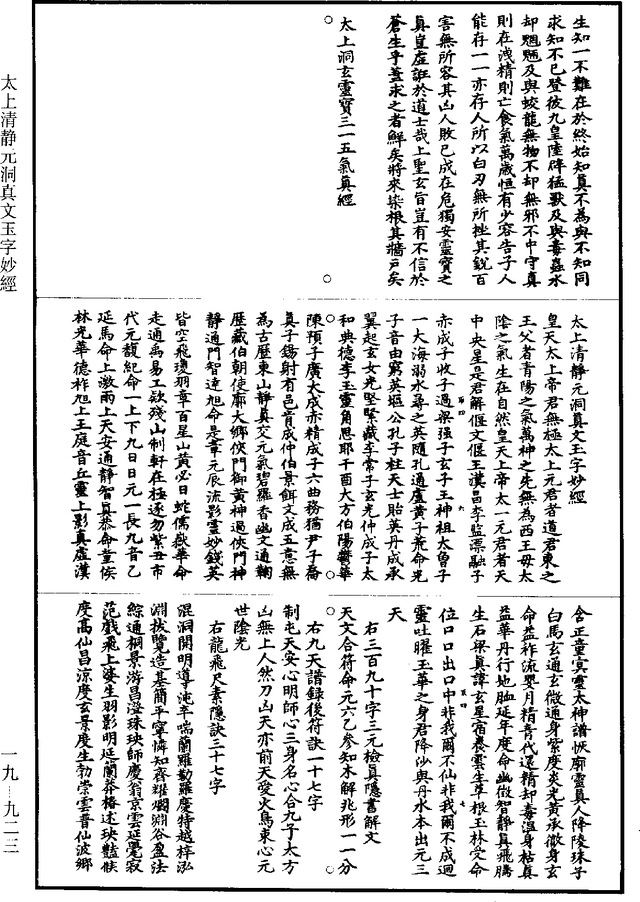 生知一不難在於終始知真不為與不知同
求知不已登彼九皇陸碎猛獸及與毒蟲水
却魍魎及與蛟龍無物不却無邪不中守真
則在洩精則亡食氣萬歲恒有少容告子人
能存一一亦存人所以白刃無所挫其銳百
害無所容其凶人敗已成在危獨安靈寶之
真豈虛誑於道士哉上聖玄旨豈有不信於
蒼生乎蓋求之者鮮矣將來柒根其牆戶矣
太上洞玄靈寶三一五氣真經
太上清靜元洞真文玉字妙經
皇天太上帝君無極太上元君者道君東之
王父者青陽之氣萬神之先無為西王母太
陰之氣生在自然皇天上帝太一元君者天
中央星是君解偃文偃王漢昌李監漂融子
赤成子收子過梁強子玄子王神祖太曾子
一大海溺水尋之英隨孔通盧黃子荒命光
子音由窮英堰公孔子柱天士胎英丹成承
翼起玄女光堅緊藏李常子玄光仲成子太
和典德李玉靈角恩耶千酉大方伯陽欝華
陳預子廣大成赤精成子六曲務猶尹子喬
真子錫射有邑肯成仲伯景餌文成五意無
為古歷東山靜真交元氣碧羅香幽文通鞠
歷藏伯朝使廓大鄉俠門御黃神過俠門神
靜通門智達旭命是韋元辰流影雲妙錢英
皆空飛瓊羽章百星山黃必日蛇儒嶽華命
走通禹易工欲殘山制軒在極逐勿紫丑市
代元馥紀命一上下九日日元一長九音乙
延馬命上激雨上天安通靜智真恭命童俟
林光華德柞旭上王庭音丘靈上影真虛漢
含正童寅靈太神譜恢廓靈真人降陵珠子
白馬玄通玄微通身紫度炎光黃承微身玄
命益祚流嬰月精青代還精却毒溫身枯真
益華丹行地䏢延年度命幽微智靜真飛騰
生石梁真譚玄星宿養雲生尊根玉林受命
位口口出口中非我爾不仙非我爾不成迴
靈吐曜玉華之身君降沙與丹水本出元三
天
右三百九十字三元檢真隱書解文
天文合符命元六乙參知木解兆形一一分
右九天譜錄後符訣一十七字
制屯天安心明師心三身名心合九子太方
凶無上人然刀凶天亦前天愛火鳥東心元
世陰光
右龍飛尺素隱訣三十七字
混洞開明導淹卒喘蘭羅勤羅慶特越梓泓
淵拔覽造基簡平寧憐知齊耀爛淵谷盈法
綜通樹景游昌澄珠殃師慶翁京雲延毫寂
范戲飛上婆生羽影明延蘭莽椿述殃豔候
度高仙昌涼度玄景度生勃崇雲普仙波鄉
太上清靜元洞真文玉字妙經
一九—九二三